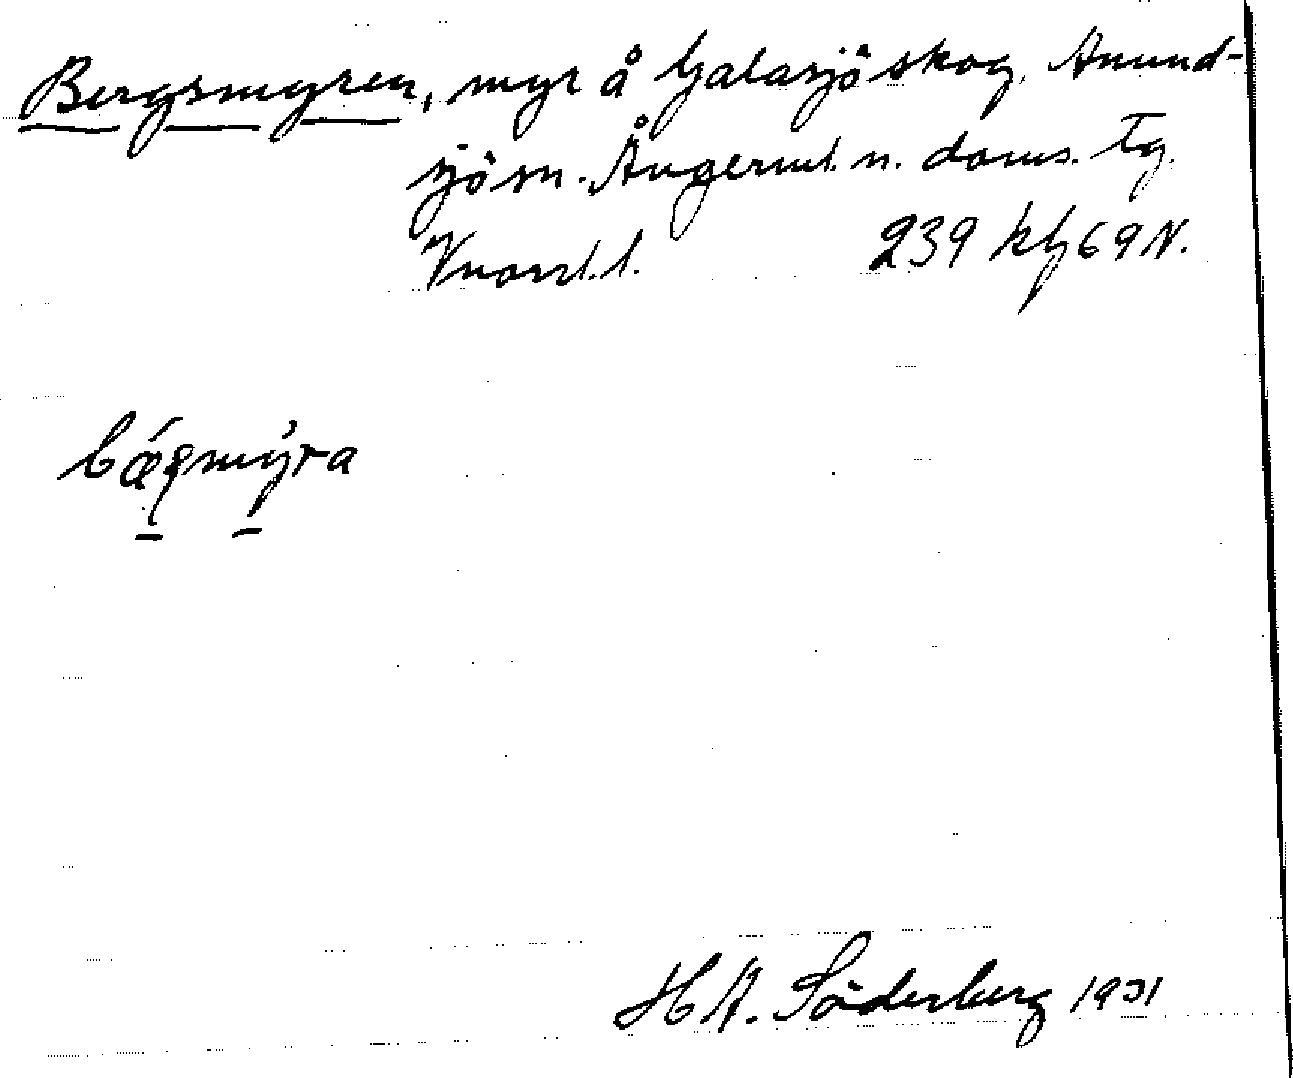 Bergsmyren, myr å Galasjö skog, Anund-
sjö sn. Ångerml. n. doms. Tg.
Vnorrl. l. 239 kbl 69 N.
bǽqmy̆ra
H A. Söderberg 1931